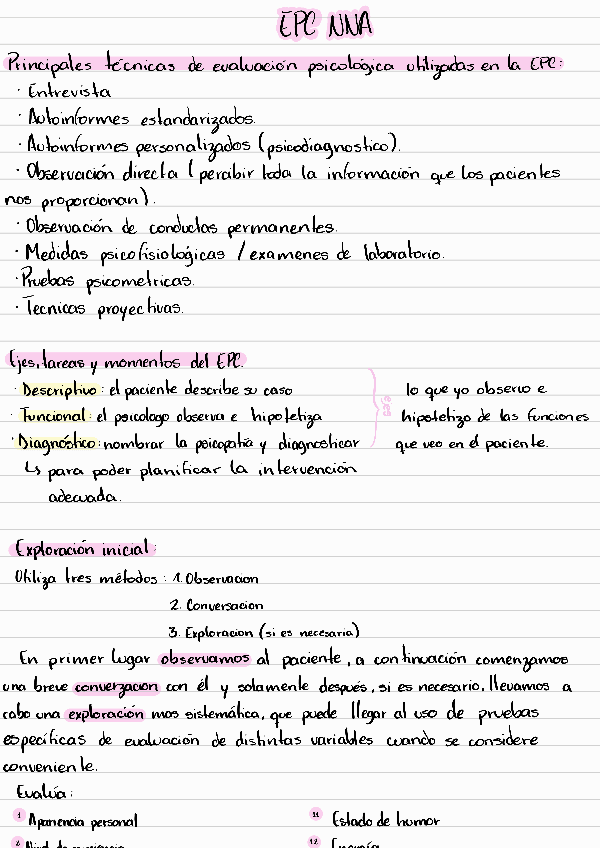 EPC NNA
Principales técnicas de evaluación psicológica utilizadas en la EPC:
· Entrevista
· Autoinformes estandarizados.
· Autoinformes personalizados (psicodiagnostico).
· Observación directa (percibir toda la información que los pacientes
nos proporcionan).
· Observación de conductas permanentes.
· Medidas psicofisiológicas / examenes de laboratorio.
· Pruebas psicometricas.
· Tecnicas proyectivas.
Ejes, tareas y momentos del EPC.
· Descriptivo: el paciente describe su caso
· Funcional: el psicologo observa e hipotetiza
· Diagnóstico: nombrar la psicopatía y diagnosticar
↳ para poder planificar la intervención
adecuada.
ejes
lo que yo observo e
hipotetizo de las funciones
que veo en el paciente.
Exploración inicial:
Utiliza tres métodos: 1. Observacion
2. Conversacion
3. Exploracion (si es necesaria)
En primer lugar observamos al paciente, a continuación comenzamos
una breve converzacion con él y solamente después, si es necesario, llevamos a
cabo una exploración mas sistemática, que puede llegar al uso de pruebas
específicas de evaluación de distintas variables cuando se considere
conveniente.
Evalúa:
1 Apariencia personal
11 Estado de humor
2
12 Energía